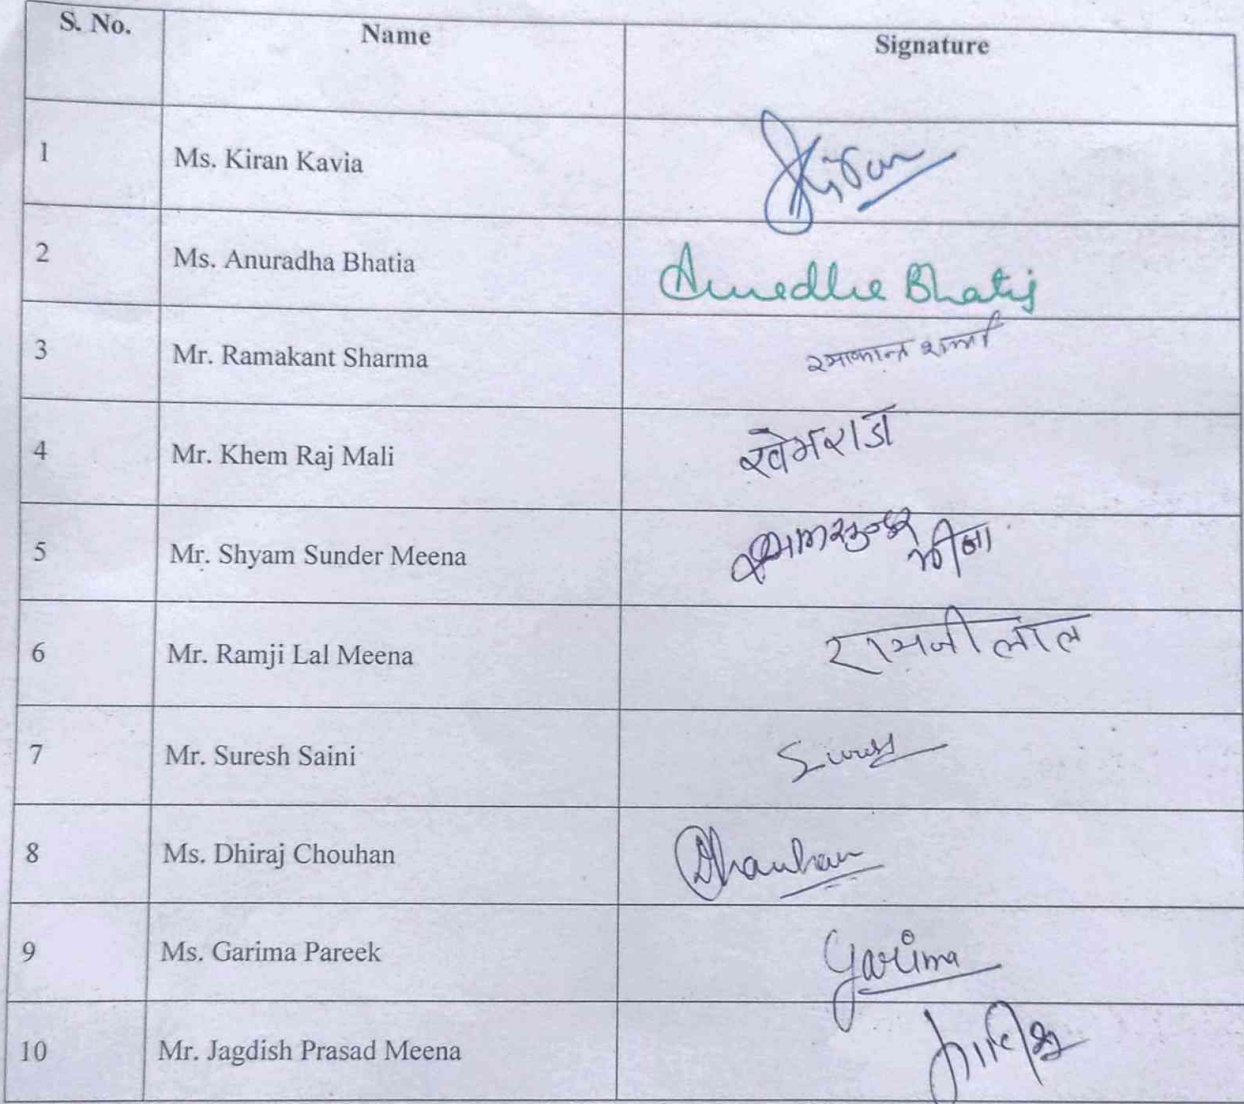 S. No. Name Signature
1 Ms. Kiran Kavia Kiran
2 Ms. Anuradha Bhatia Bhatia
3 Mr. Ramakant Sharma रमाकान्त शर्मा
4 Mr. Khem Raj Mali खेमराज
5 Mr. Shyam Sunder Meena श्यामसुन्दर मीना
6 Mr. Ramji Lal Meena रामजी लाल
7 Mr. Suresh Saini Suresh
8 Ms. Dhiraj Chouhan
9 Ms. Garima Pareek Garima
10 Mr. Jagdish Prasad Meena